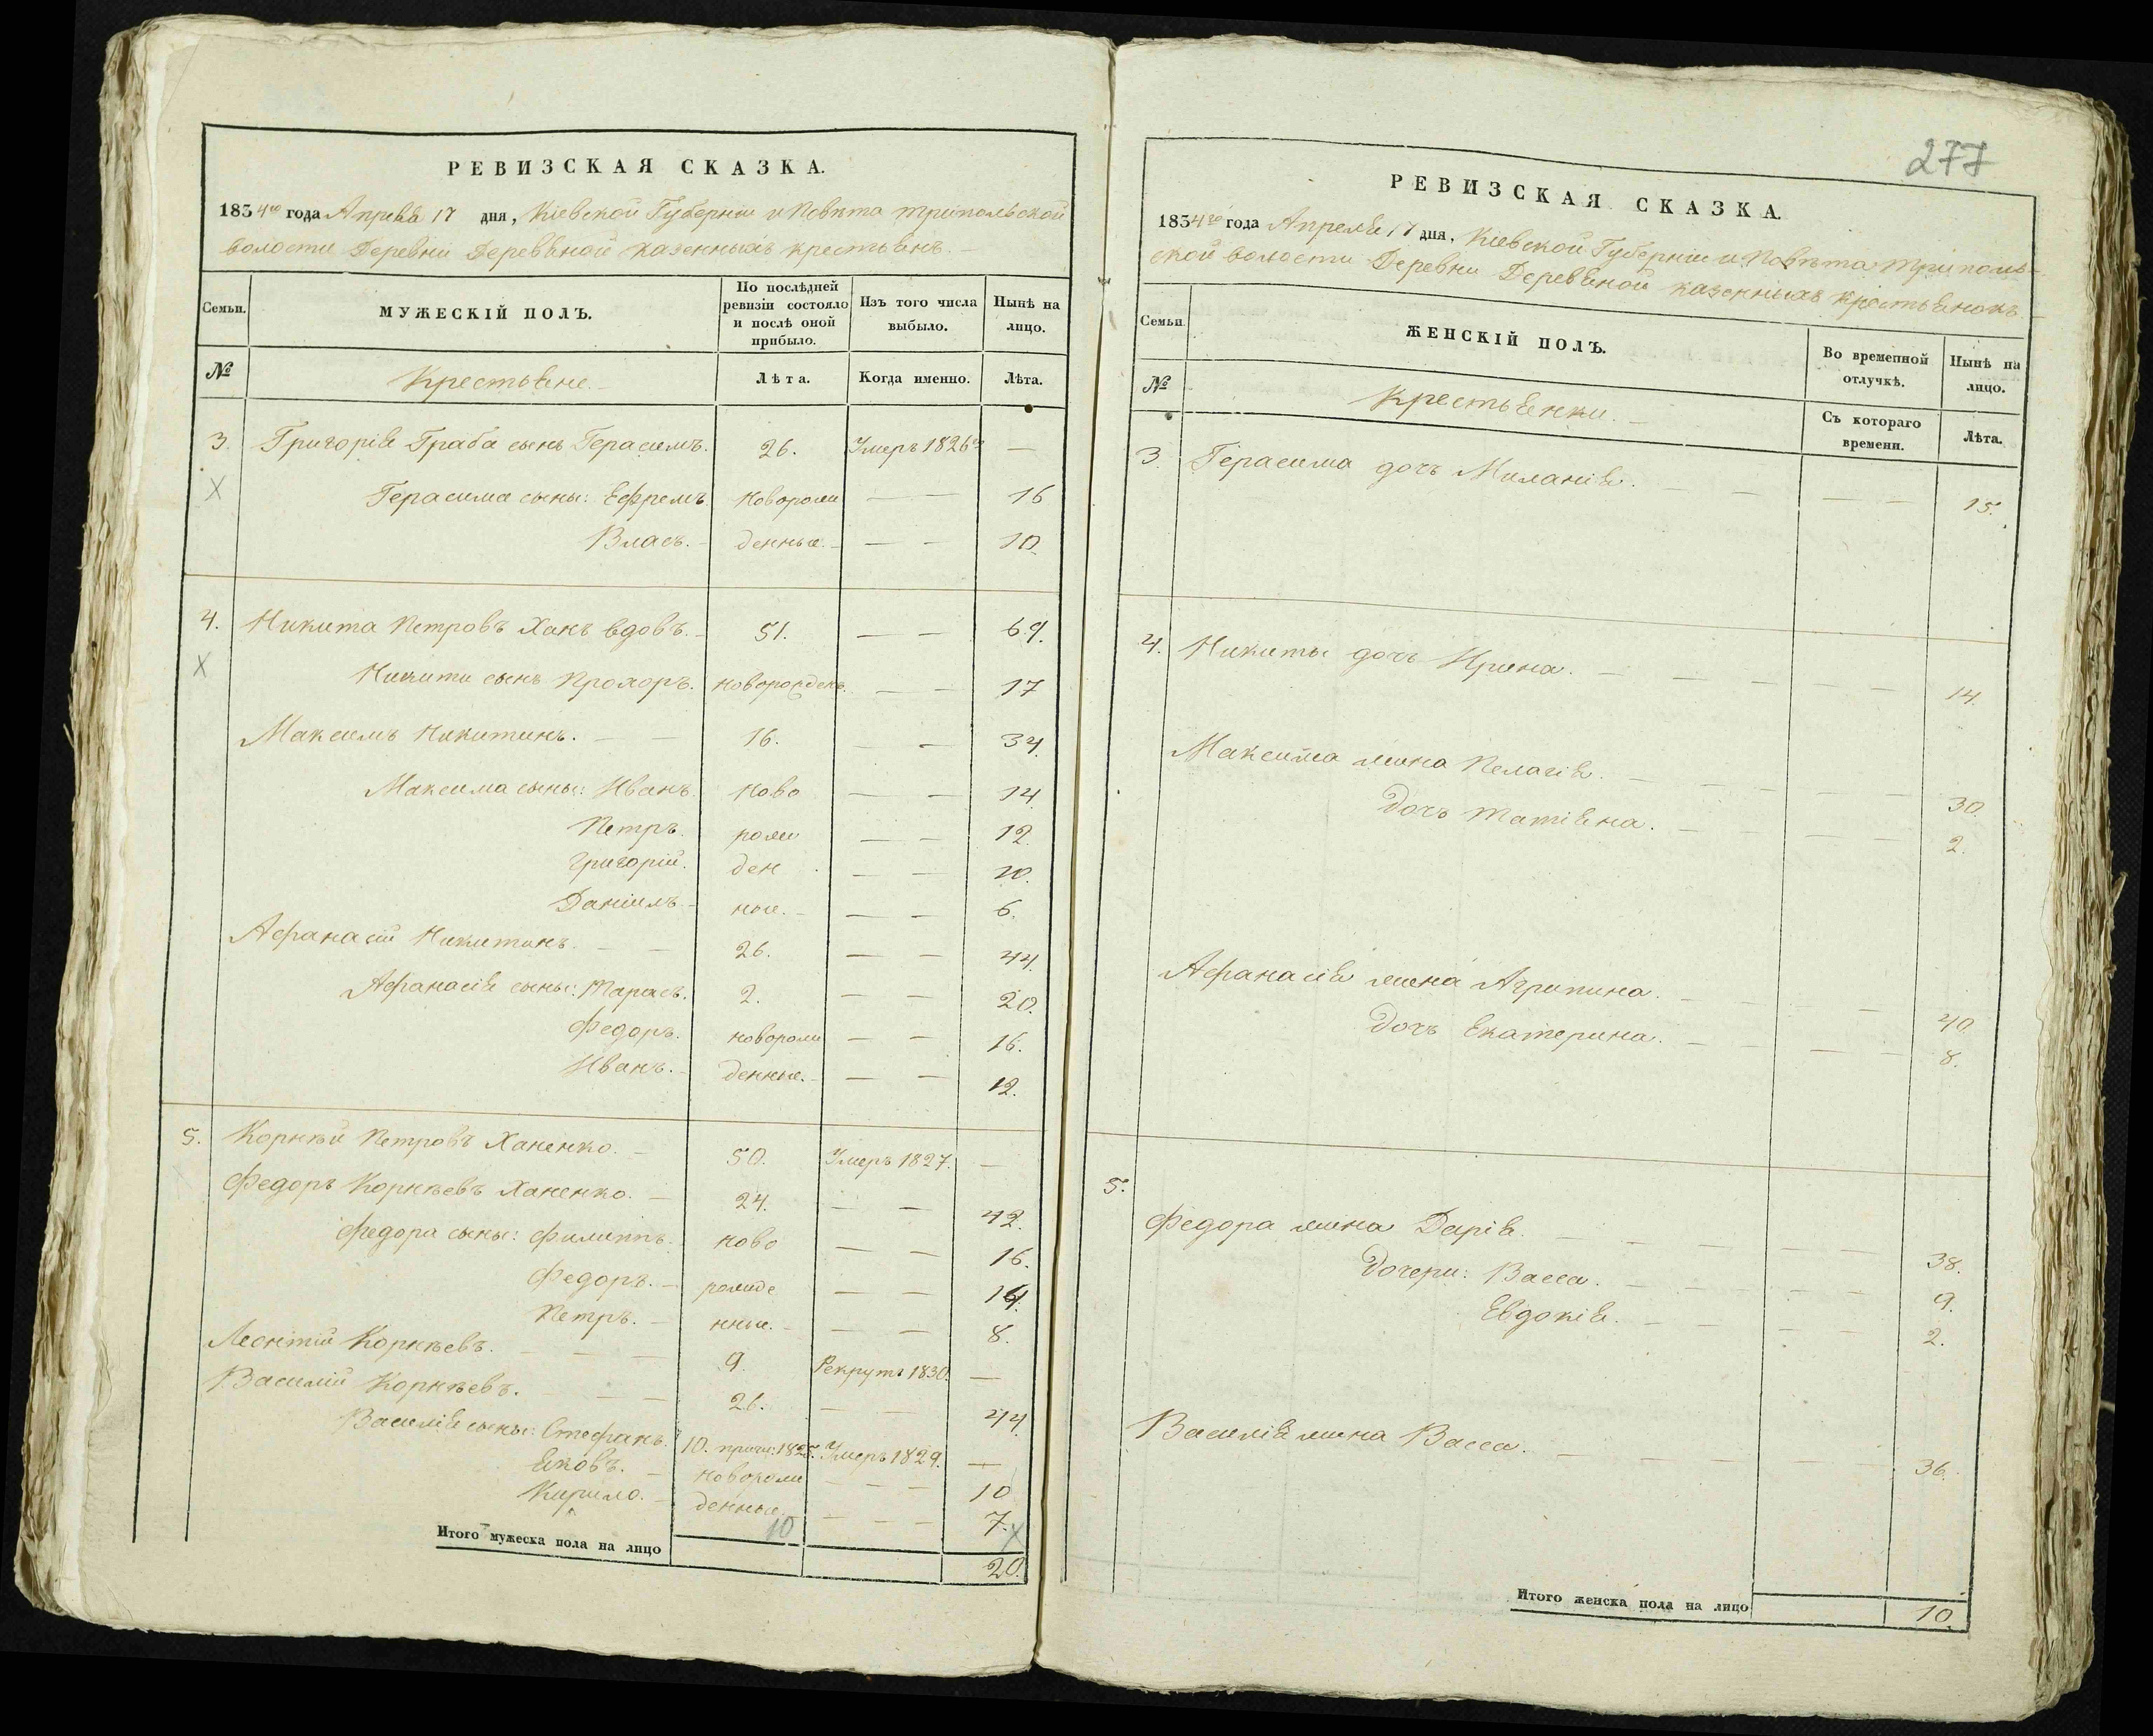 РЕВИЗСКАЯ СКАЗКА.
1834го года Апреля 17 дня, Кіевской Губерніи и Повѣта трипольской
волости Деревни Деревяной казенныхъ крестьянъ.
Семьи. МУЖЕСКІЙ ПОЛЪ. По послѣдней ревизіи состояло и послѣ оной прибыло. Изъ того числа выбыло. Нынѣ на лицо.
№ Крестьяне. Лѣта. Когда именно. Лѣта.
3. Григорія Граба сынъ Герасимъ. 26. Умеръ 1826го —
Герасима сыны: Ефремъ. новорож — — 16
Власъ. денные. — — 10.
4. Никита Петровъ Ханъ вдовъ. 51. — — 69.
Никити сынъ Прохоръ. новорожденъ. — — 17
Максимъ Никитинъ. — — 16. — — 34.
Максима сыны: Иванъ. ново — — 14.
Петръ. рож — — 12.
Григорій. ден — — 10.
Даніилъ. ные. — — 6.
Афанасій Никитинъ. — — 26. — — 44.
Афанасія сыны: Тарасъ. 2. — — 20.
Федоръ. новорож — — 16.
Иванъ. денные. — — 12.
5. Корнѣй Петровъ Ханенко. 50. Умеръ 1827. —
Федоръ Корнѣевъ Ханенко. 24. — — 42.
Федора сыны: Филиппъ. ново — — 16.
Федоръ. рожде — — 14.
Петръ. нные. — — 8.
Леонтій Корнѣевъ. — — — 9. Рекрутъ 1830. —
Василій Корнѣевъ. — — — 26. — — 44.
Василія сыны: Стефанъ. 10. 1825. Умеръ 1829. —
Яковъ. новорож — — 10
Кирило. денные. — — 7. X
10
Итого мужеска пола на лицо 20.
277
РЕВИЗСКАЯ СКАЗКА.
1834го года Апреля 17 дня, Кіевской Губерніи и Повѣта триполь-
ской волости Деревни Деревяной казенныхъ крестьянокъ.
Семьи. ЖЕНСКІЙ ПОЛЪ. Во временной отлучкѣ. Нынѣ на лицо.
№ Крестьянки. Съ котораго времени. Лѣта.
3. Герасима дочь Миланія. — — — — 15.
4. Никиты дочь Ирина. — — — — — 14.
Максима жена Пелагія. — — — — 30.
Дочь татіяна. — — — — 2.
Афанасія жена Агрипина. — — — 40.
Дочь Екатерина. — — — — 8.
5. Федора жена Дарія. — — — — — 38.
Дочери: Васса. — — — — 9.
Евдокія. — — — — 2.
Василія жена Васса. — — — — — 36.
Итого женска пола на лицо 10.